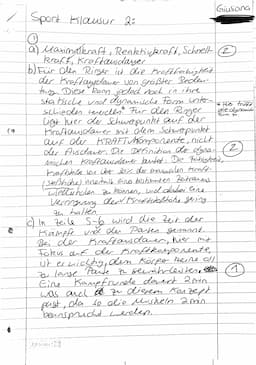 Giuliana
Sport Klausur Q2
①
a) Maximalkraft, Reaktivkraft, Schnell-
kraft, Kraftausdauer
②
b) Für den Ringer ist die Kraftfähigkeit
der Kraftausdauer von größter Bedeu-
tung. Diese kann jedoch noch in ihre
statische und dynamische Form unter-
schieden werden. Für den Ringer
liegt hier der Schwerpunkt auf der
Kraftausdauer mit dem Schwerpunkt
auf der KRAFTkomponente, nicht
der Ausdauer. Die Definition der dyna-
mischen Kraftausdauer lautet: Die Fähigkeit
Kraftstöße von über 30% der maximalen Kraft
innerhalb eines bestimmten Zeitraums
wiederholen zu können, und dabei eine
Verringerung der Kraftstoßhöhe gering
zu halten.
②
c) In Zeile 5-6 wird die Zeit der
Kämpfe und der Pausen genannt.
Bei der Kraftausdauer, hier mit
Fokus auf der Kraftkomponente,
ist es wichtig, dem Körper keine all
zu lange Pause zu gewährleisten.
Eine Kampfrunde dauert 2min
was auch zu diesem Konzept
passt, da so die Muskeln 2min
beansprucht werden.
①